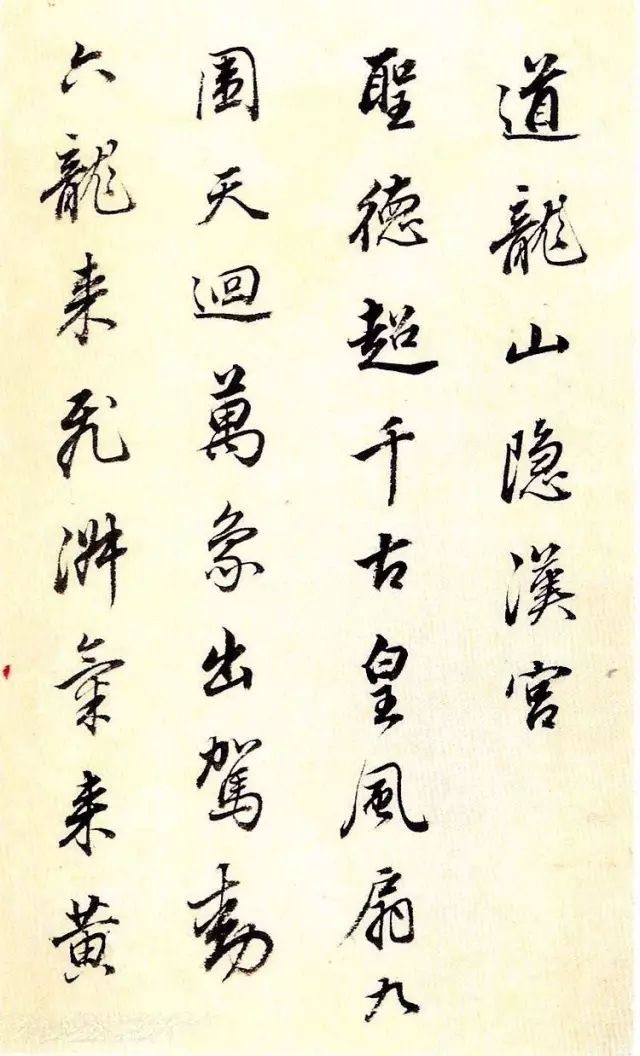 道龍山隐漢宫
聖德超千古皇風扇九
圍天迴萬象出駕動
六龍来飛淑氣来黄